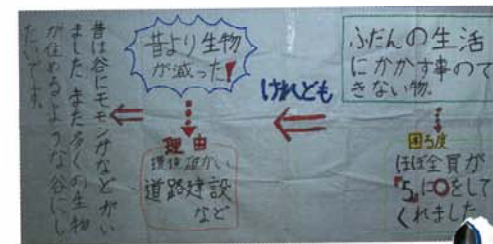 ふだんの生活
にかかす事ので
きない物。
困る度
ほぼ全員が
「5」に○をして
くれました
けれども
昔より生物
が減った!
理由
道路建設
など
昔は谷にモモンガなどがい
ました また多くの生物
が住めるような谷にし
たいです。